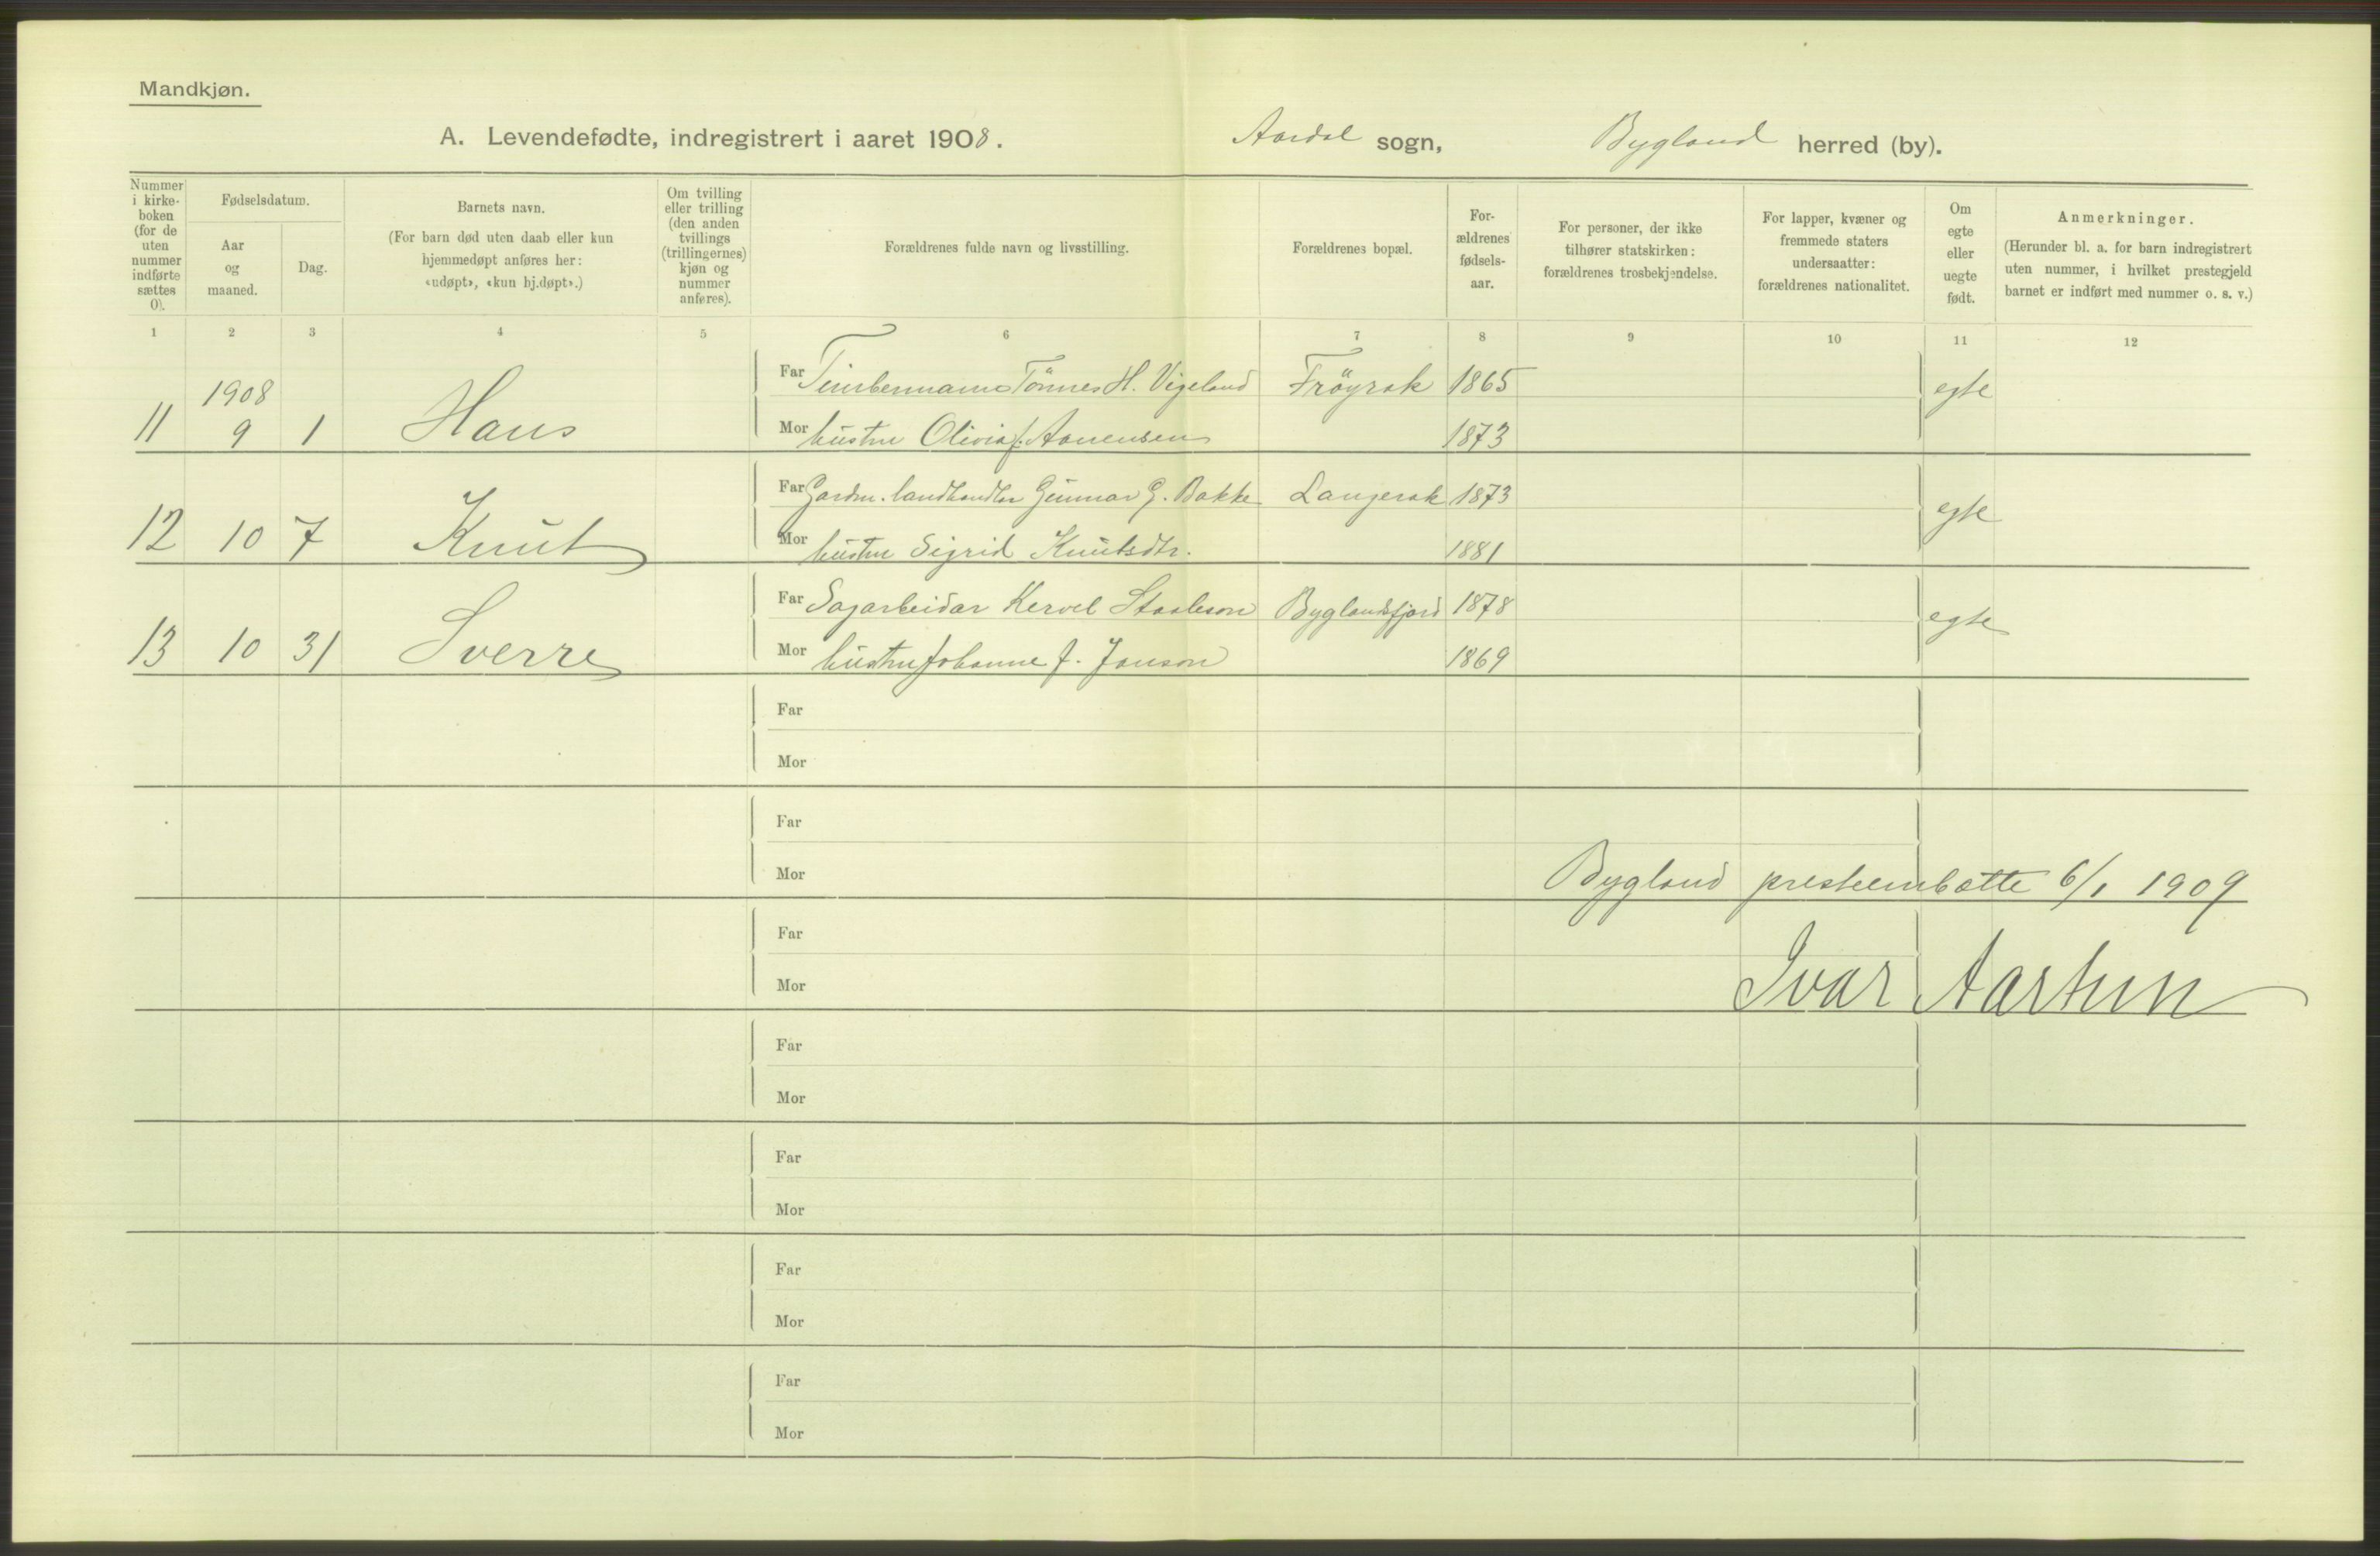 Mandkjøn.
A. Levendefødte, indregistrert i aaret 1908. Aardal sogn, Bygland herred (by).
Nummer i kirke-boken (for de uten nummer indførte sættes 0).
Fødselsdatum.
Aar og maaned.
Dag.
Barnets navn.
(For barn død uten daab eller kun hjemmedøpt anføres her: «udøpt», «kun hj.døpt».)
Om tvilling eller trilling (den anden tvillings (trillingernes) kjøn og nummer anføres).
Forældrenes fulde navn og livsstilling.
Forældrenes bopæl.
For-ældrenes fødsels-aar.
For personer, der ikke tilhører statskirken: forældrenes trosbekjendelse.
For lapper, kvæner og fremmede staters undersaatter: forældrenes nationalitet.
Om egte eller uegte født.
Anmerkninger.
(Herunder bl. a. for barn indregistrert uten nummer, i hvilket prestegjeld barnet er indført med nummer o. s. v.)
1 2 3 4 5 6 7 8 9 10 11 12
1908
Far Timbermann Tönnes H. Vigeland Fröyrak 1865 egte
11 9 1 Hans Mor hustru Olivia f. Aanensen 1873
Far Gardm. landhandlar Gunnar G. Bakke Langerak 1873 egte
12 10 7 Knut Mor hustru Sigrid Knutsdtr. 1881
Far Sagarbeidar Kervel Staaleson Byglandsfjord 1878 egte
13 10 31 Sverre Mor hustru Johanne f. Jonson 1869
Far
Mor
Far
Mor Bygland presteembætte 6/1 1909
Far
Mor Ivar Aartun
Far
Mor
Far
Mor
Far
Mor
Far
Mor